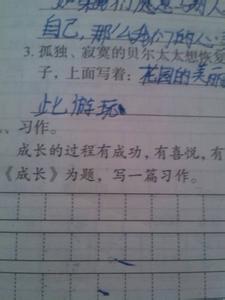 自己,那么我们的心
3. 孤独、寂寞的贝尔太太想恢复
子,上面写着:花园的美丽
此游玩
、习作。
成长的过程有成功,有喜悦,有
《成长》为题,写一篇习作。